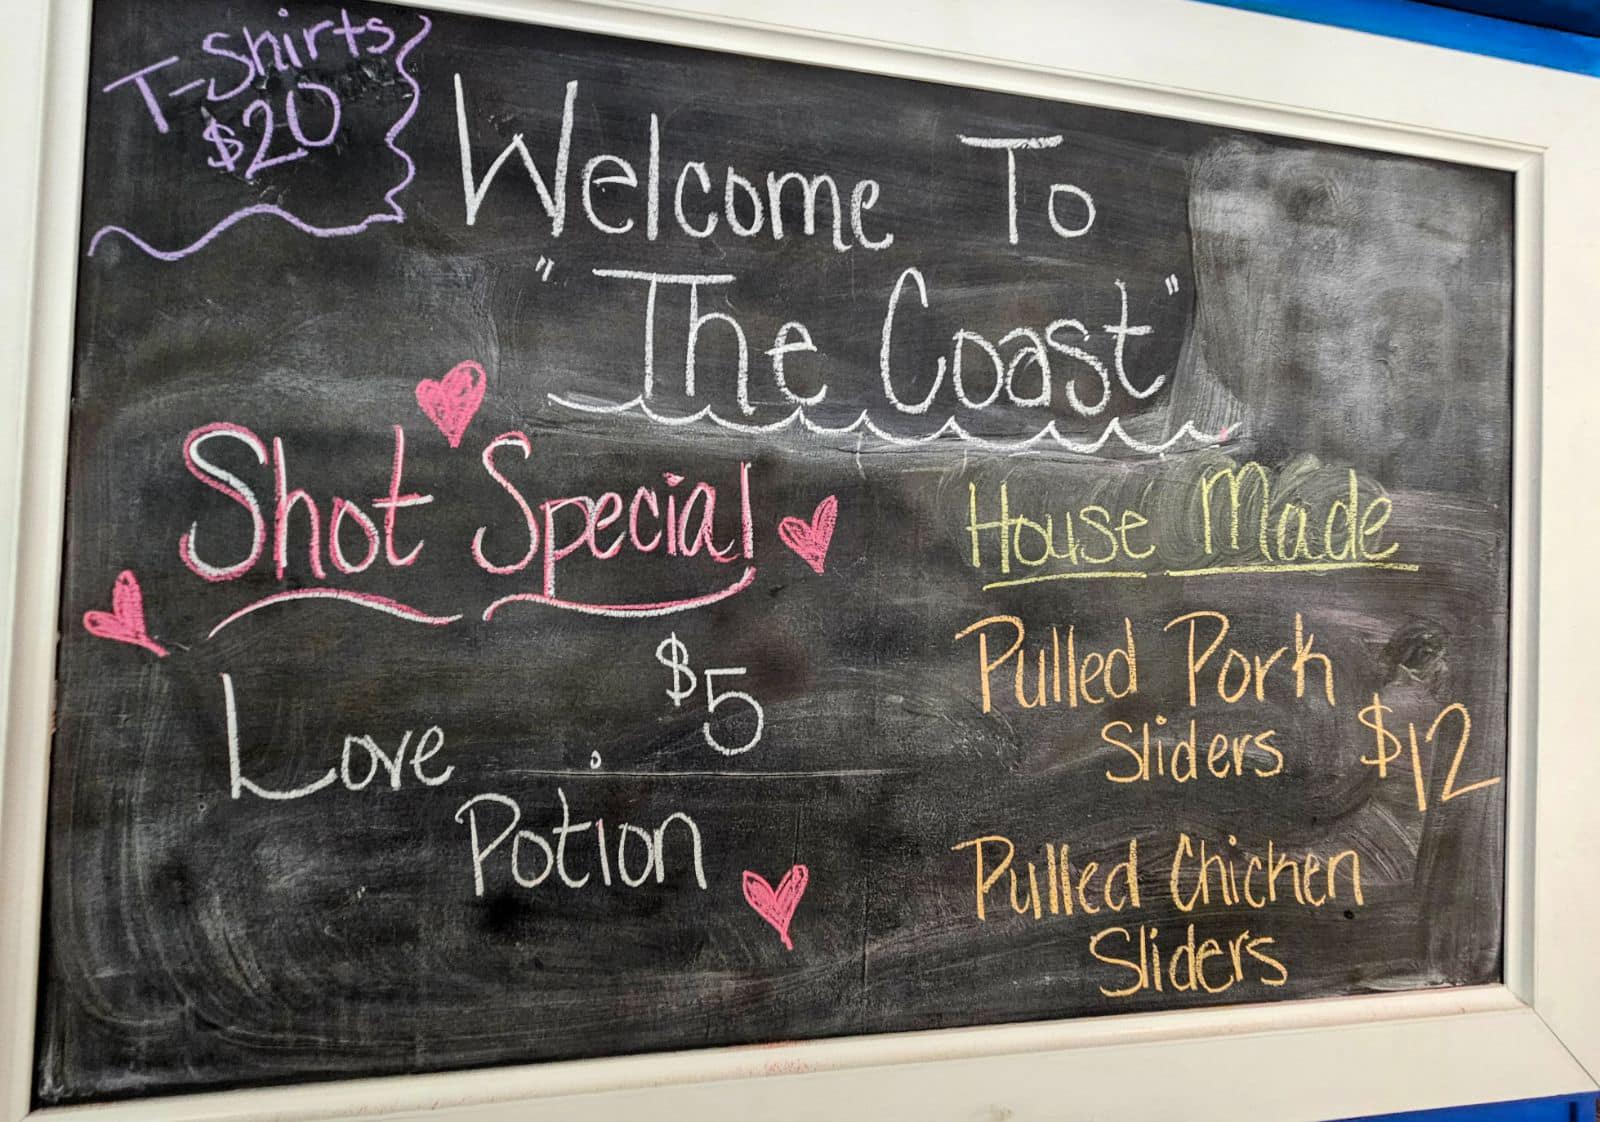 T-Shirts
$20
Welcome To
"The Coast"
Shot Special
$5
Love
Potion
House Made
Pulled Pork
Sliders
$12
Pulled Chicken
Sliders